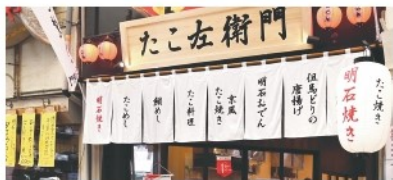 たこ左衛門
明石焼き
たこめし
鯛めし
たこ料理
京風
たこ焼き
明石おでん
但馬どりの
唐揚げ
明石焼き
たこ焼き